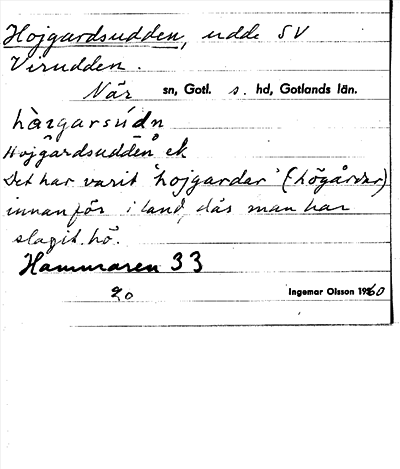 Hojgardsudden, udde SV
Virudden.
När sn, Gotl. s. hd, Gotlands län.
hàigarsúdn
Hojgårdsudden ek
Det har varit 'hojgardar' (högårdar)
innanför i land, dås man har
slagit hö.
Hammaren 33
20 Ingemar Olsson 1960